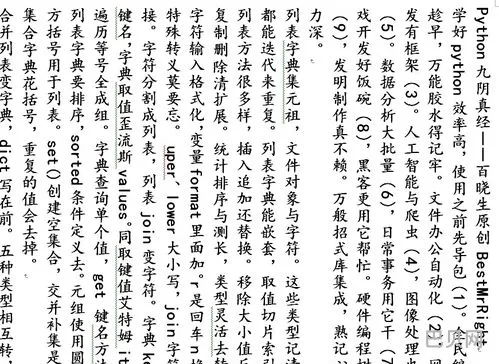 Python 九阴真经——百晓生原创 BestMrRigh
学好 python 效率高，使用之前先导包（1）。会编
趁早，万能胶水得记牢。文件办公自动化（2），网
发有框架（3）。人工智能与爬虫（4），图像处理也
（5）。数据分析大批量（6），日常事务用它干（7
戏开发好饭碗（8），黑客更用它帮忙。硬件编程
（9），发明制作真不赖。万般招式库集成，熟记
力深。
列表字典集元祖，文件对象与字符。这些类型记
都能迭代来重复。列表字典能嵌套，取值切片索
列表方法很多样，插入追加还替换。移除大小值
复制删除清扩展。统计排序与测长，类型灵活去
字符输入格式化，变量 format 里面加。r 是回车 n
特殊转义莫要忘。uper、lower 大小写，join 字符
接。字符分割成列表，列表 join 变字符。字典 ke
键名，字典取值歪流斯 values。同取键值艾特姆 it
遍历等号全成组。字典查询单个值，get 键名方
列表字典要排序，sorted 条件定义去。元组使用圆
方括号用于列表。set()创建空集合，交并补集是
集合字典花括号，重复的值会去掉。
合并列表变字典，dict 写在前。五种类型相互转，